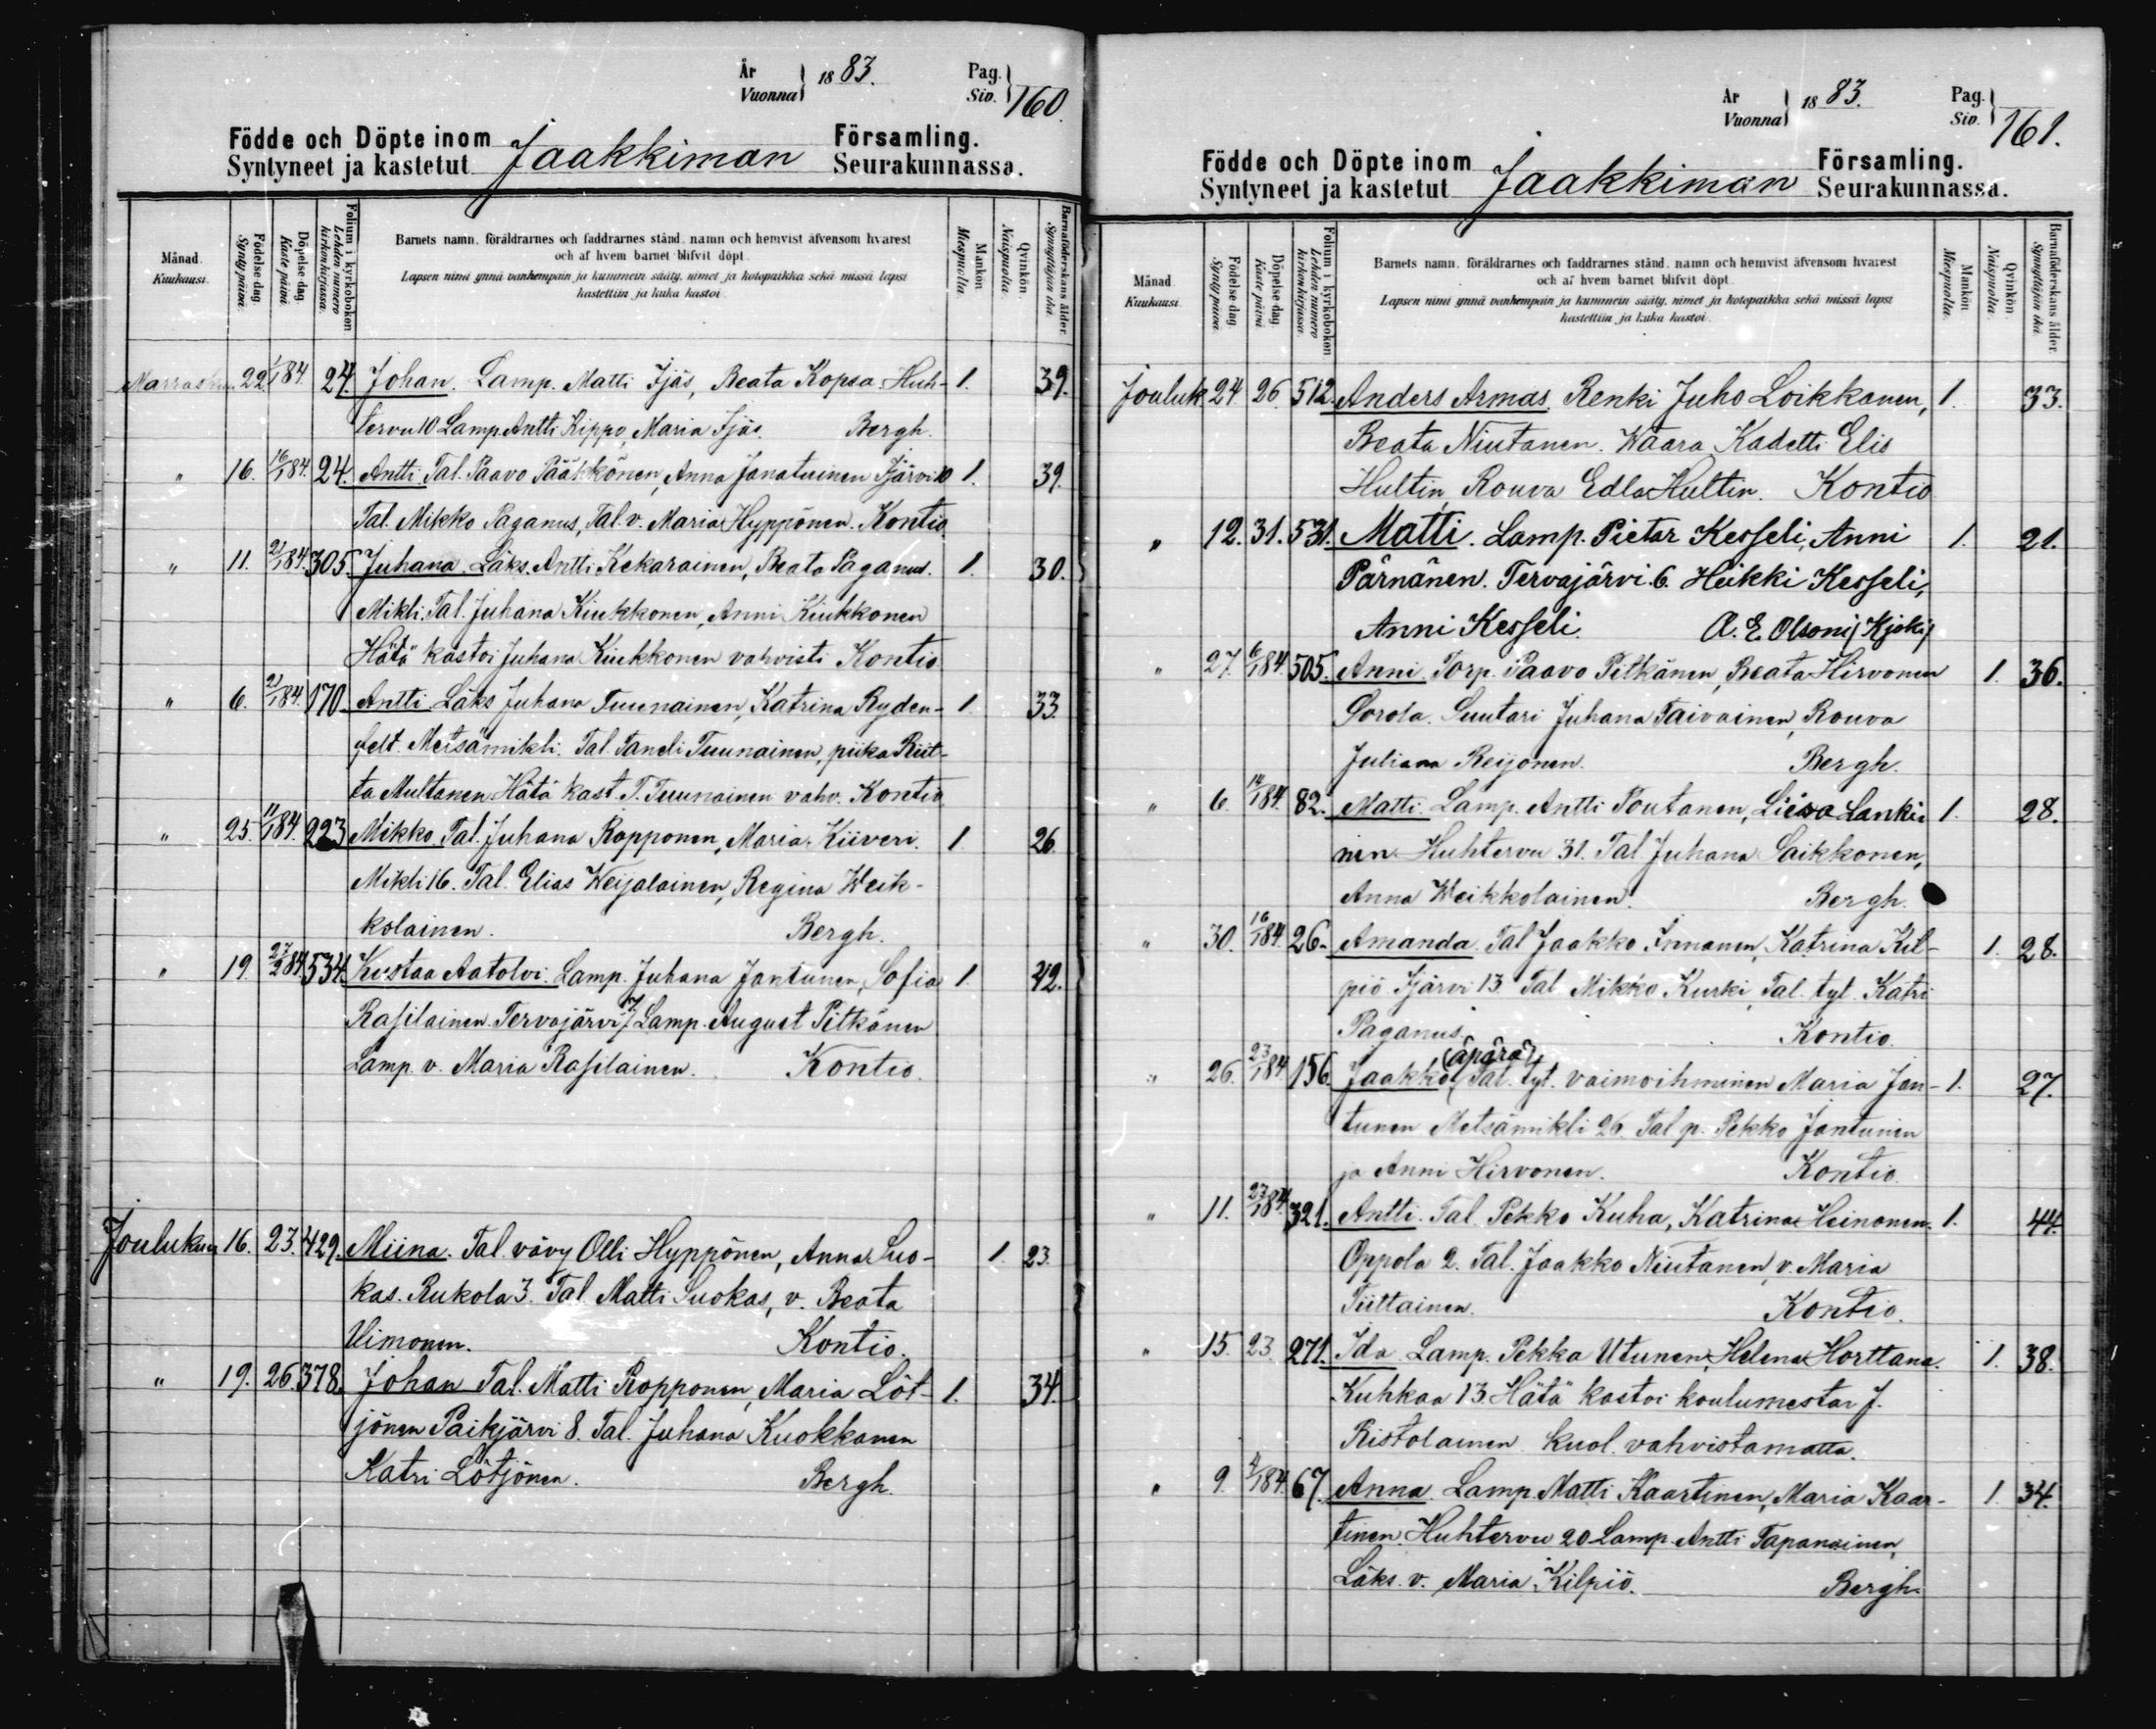 År
Vuonna } 1883.
Pag.
Siv. } 160.
Födde och Döpte inom Jaakkiman Församling.
Syntyneet ja kastetut Seurakunnassa.
Månad. Kuukausi.
Födelse dag. Synty päivä.
Döpelse dag. Kaste päivä.
Folium i kyrkobokon Lehden numero kirkonkirjassa.
Barnets namn, föräldrarnes och faddrarnes stånd, namn och hemvist äfvensom hvarest
och af hvem barnet blifvit döpt.
Lapsen nimi ynnä vanhempain ja kummein sääty, nimet ja kotopaikka sekä missä lapsi
kastettiin ja kuka kastoi.
Mankön. Miespuolia.
Qvinkön. Naispuolia.
Barnaföderskans ålder. Synnyttäjän ikä.
Marraskuu 22. 1/1 84. 24. Johan. Lamp. Matti Ijäs, Beata Kopsa. Huh- 1. 39.
tervu 10 Lamp. Antti Rippo, Maria Ijäs. Bergh.
" 16. 16/1 84. 24. Antti. Tal. Paavo Pääkkönen, Anna Janatuinen Ijärvi 10 1. 39.
Tal. Mikko Paganus, Tal. v. Maria Hyppönen. Kontio.
" 11. 21/1 84. 305. Juhana. Läks. Antti Kekarainen, Beata Paganus. 1. 30.
Mikli. Tal. Juhana Kiukkonen, Anni Kiukkonen
Hätä kastoi Juhana Kiukkonen vahvisti Kontio
" 6. 21/1 84. 170. Antti. Läks Juhana Tuunainen, Katrina Ryden- 1. 33.
felt. Metsämikli. Tal. Taneli Tuunainen, piika Riit-
ta Multanen Hätä kast. T. Tuunainen vahv. Kontio
" 25. 11/1 84. 223 Mikko. Tal. Juhana Ropponen, Maria Kiiveri. 1. 26.
Mikli 16. Tal. Elias Weijalainen, Regina Weik-
kolainen. Bergh.
" 19. 27/2 84. 534. Kustaa Aatolvi. Lamp. Juhana Jantunen, Sofia 1. 42.
Rasilainen. Tervajärvi 7 Lamp. August Pitkänen
Lamp. v. Maria Rasilainen. Kontio.
Joulukuu 16. 23. 429. Miina. Tal. vävy Olli Hyppönen, Anna Suo- 1. 23.
kas. Rukola 3. Tal Matti Suokas, v. Beata
Uimonen. Kontio.
" 19. 26. 378. Johan Tal. Matti Ropponen, Maria Löt- 1. 34.
jönen Paikjärvi 8. Tal. Juhana Kuokkanen
Katri Lötjönen. Bergh.
År
Vuonna } 1883.
Pag.
Siv. } 161.
Födde och Döpte inom Jaakkiman Församling.
Syntyneet ja kastetut Seurakunnassa.
Månad. Kuukausi.
Födelse dag. Synty päivä.
Döpelse dag. Kaste päivä.
Folium i kyrkobokon Lehden numero kirkonkirjassa.
Barnets namn, föräldrarnes och faddrarnes stånd, namn och hemvist äfvensom hvarest
och af hvem barnet blifvit döpt.
Lapsen nimi ynnä vanhempain ja kummein sääty, nimet ja kotopaikka sekä missä lapsi
kastettiin ja kuka kastoi.
Mankön. Miespuolia.
Qvinkön. Naispuolia.
Barnaföderskans ålder. Synnyttäjän ikä.
Jouluk. 24. 26. 512. Anders Armas. Renki Juho Loikkanen, 1. 33.
Beata Niutanen. Waara Kadetti Elis
Hultin, Rouva Edla Hultin. Kontio
" 12. 31. 531. Matti. Lamp. Pietar Kesseli, Anni 1. 21.
Pärnänen. Tervajärvi 6. Heikki Kesseli,
Anni Kesseli. A. E. Olsoni (Kjoki)
" 27. 6/1 84. 505. Anni. Torp. Paavo Pitkänen, Beata Hirvonen 1. 36.
Sorola. Suutari Juhana Taivainen, Rouva
Juliana Reijonen. Bergh.
" 6. 14/1 84. 82. Matti. Lamp. Antti Poutanen, Liisa Lanki- 1. 28.
nen. Huhtervu 31. Tal Juhana Saikkonen,
Anna Weikkolainen. Bergh.
" 30. 16/1 84. 26. Amanda. Tal Jaakko Innanen, Katrina Kil- 1. 28.
piö. Ijärvi 13. Tal Mikko Kurki, Tal. tyt. Katri
Paganus. Kontio.
(äpärä)
" 26. 23/1 84 156. Jaakko Tal. tyt. vaimoihminen Maria Jan- 1. 27.
tunen Metsämikli 26. Tal p. Pekko Jantunen
ja Anni Hirvonen. Kontio.
" 11. 27/1 84. 321. Antti. Tal. Pekko Kuha, Katrina Heinonen. 1. 44.
Oppola 2. Tal. Jaakko Niutanen, v. Maria
Tiittainen. Kontio.
" 15. 23. 271. Ida. Lamp. Pekka Utunen, Helena Horttana. 1. 38.
Kuhkaa 13. Hätä kastoi koulumestar J.
Ristolainen kuol. vahvistamatta.
" 9. 4/1 84. 67. Anna. Lamp Matti Kaartinen, Maria Kaar- 1. 34.
tinen. Huhtervu 20 Lamp. Antti Tapanainen,
Läks. v. Maria Kilpiö. Bergh.